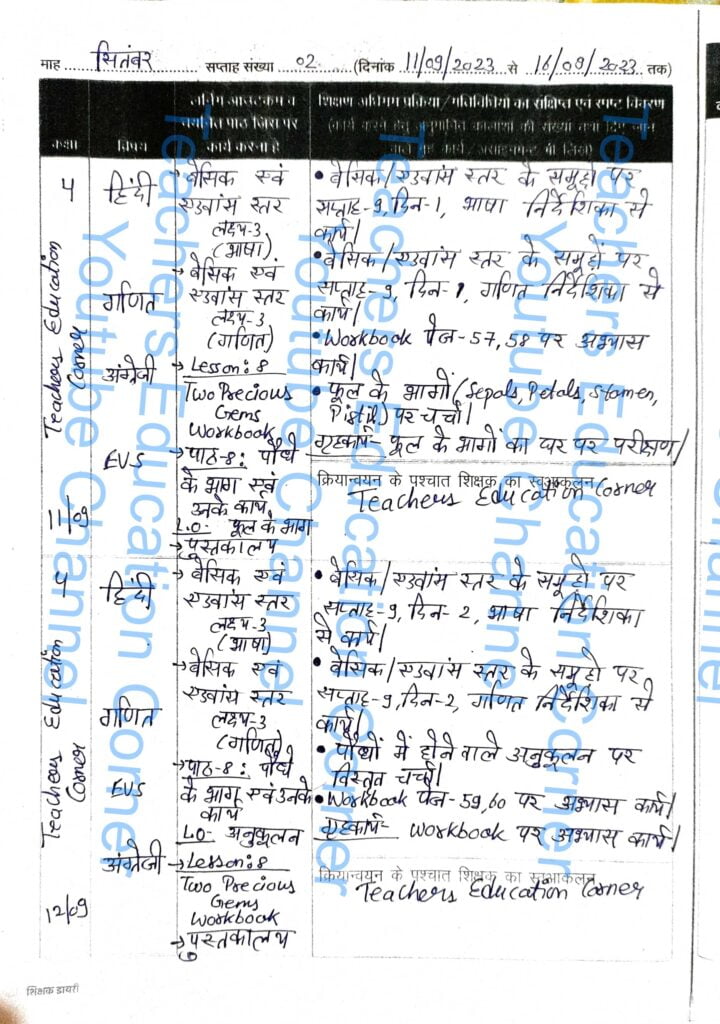 माह सितंबर सप्ताह संख्या 02 (दिनांक 11/09/2023 से 16/09/2023 तक)
कक्षा
विषय
लर्निंग आउटकम व
पाठ जिस पर
कार्य करना है
शिक्षण अधिगम प्रक्रिया / गतिविधियों का संक्षिप्त एवं स्पष्ट विवरण
4
हिंदी
→ बेसिक एवं
एडवांस स्तर
लक्ष्य-3
(भाषा)
• बेसिक/एडवांस स्तर के समूहों पर
सप्ताह-9, दिन-1, भाषा निर्देशिका से
कार्य।
गणित
→ बेसिक एवं
एडवांस स्तर
लक्ष्य-3
(गणित)
• बेसिक/एडवांस स्तर के समूहों पर
सप्ताह-9, दिन-1, गणित निर्देशिका से
कार्य।
अंग्रेजी
→ Lesson: 8
Two Precious
Gems
Workbook
• Workbook पेज-57,58 पर अभ्यास
कार्य।
EVS
→ पाठ-8: पौधे
के भाग एवं
उनके कार्य
L.O- फूल के भाग
→ पुस्तकालय
• फूल के भागों (Sepals, Petals, Stamen,
Pistil) पर चर्चा।
गृहकार्य- फूल के भागों का घर पर परीक्षण।
क्रियान्वयन के पश्चात शिक्षक का स्वआकलन
Teachers Education Corner
Teachers Education
Corner
11/09
4
हिंदी
→ बेसिक एवं
एडवांस स्तर
लक्ष्य-3
(भाषा)
• बेसिक/एडवांस स्तर के समूहों पर
सप्ताह-9, दिन-2, भाषा निर्देशिका
से कार्य।
गणित
→ बेसिक एवं
एडवांस स्तर
लक्ष्य-3
(गणित)
• बेसिक/एडवांस स्तर के समूहों पर
सप्ताह-9, दिन-2, गणित निर्देशिका से
कार्य।
EVS
→ पाठ-8: पौधे
के भाग एवं उनके
कार्य
L.O- अनुकूलन
• पौधों में होने वाले अनुकूलन पर
विस्तृत चर्चा।
अंग्रेजी
→ Lesson: 8
Two Precious
Gems
Workbook
→ पुस्तकालय
• Workbook पेज-59,60 पर अभ्यास कार्य।
गृहकार्य- Workbook पर अभ्यास कार्य।
क्रियान्वयन के पश्चात शिक्षक का स्वआकलन
Teachers Education Corner
Teachers Education
Corner
12/09
शिक्षक डायरी
Teachers Education Corner
Youtube Channel
Teachers Education Corner
Youtube Channel
Teachers Education Corner
Youtube Channel